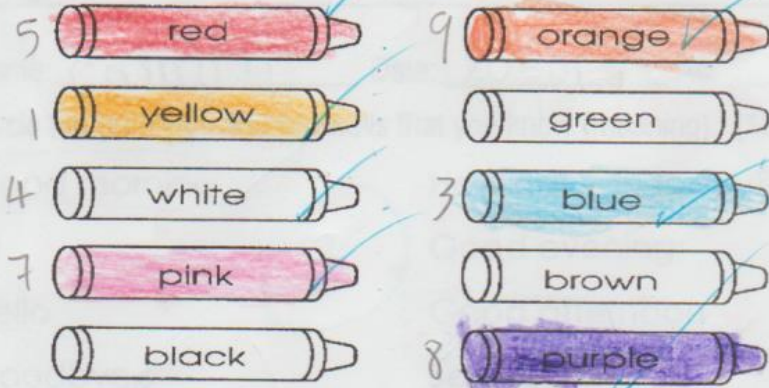 5 red
1 yellow
4 white
7 pink
black
9 orange
green
3 blue
brown
8 purple